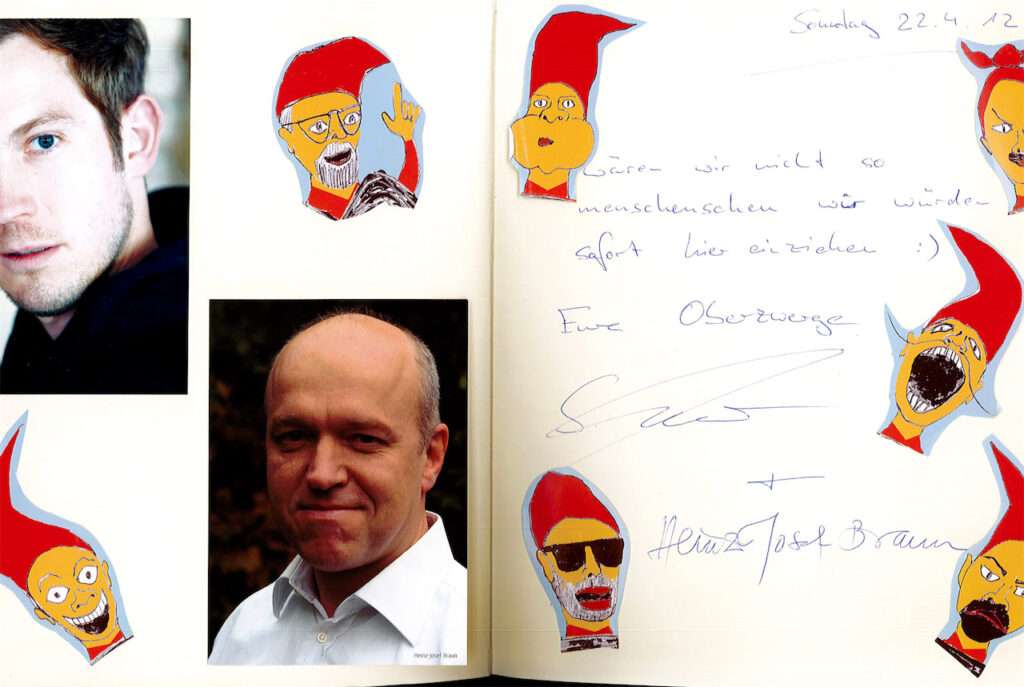 Heinz-Josef Braun
Sonntag 22.4.12
wären wir nicht so
menschenscheu wir würden
sofort hier einziehen :)
Eure Oberzwerge
+
Heinz-Josef Braun